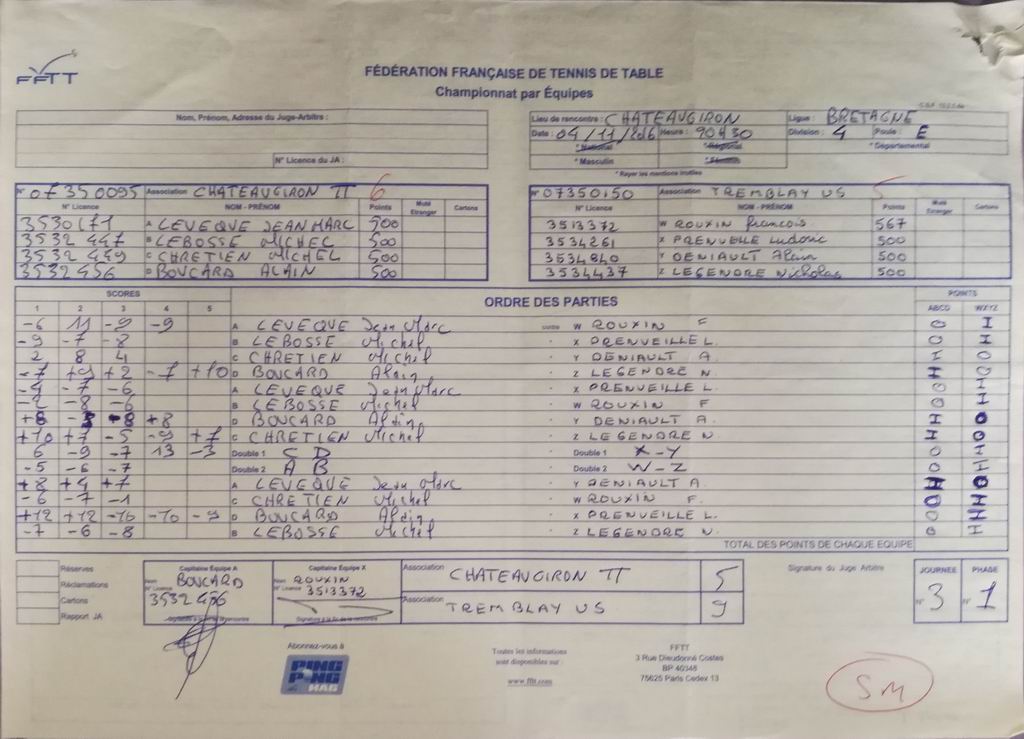 FFTT
FÉDÉRATION FRANÇAISE DE TENNIS DE TABLE
Championnat par Équipes
Nom, Prénom, Adresse du Juge-Arbitre :
N° Licence du JA :
Lieu de rencontre : CHATEAUGIRON Ligue : BRETAGNE
Date : 04/11/2016 Heure : 20H30 Division : 4 Poule : E
* National * Régional * Départemental
* Masculin * Féminin
* Rayer les mentions inutiles
N° 07350095 Association CHATEAUGIRON TT 6
N° Licence NOM - PRÉNOM Points Muté Etranger Cartons
3530171 A LEVEQUE JEAN MARC 500
3532 447 B LEBOSSE Michel 500
3532 449 C CHRETIEN MICHEL 500
3532 456 D BOUCARD ALAIN 500
N° 07350150 Association TREMBLAY US 5
N° Licence NOM - PRÉNOM Points Muté Etranger Cartons
3513372 W ROUXIN francois 567
3534261 X PRENVEILLE Ludovic 500
3534840 Y DENIAULT Alain 500
3534437 Z LEGENDRE Nicholas 500
SCORES ORDRE DES PARTIES POINTS
1 2 3 4 5 ABCD WXYZ
-6 11 -9 -9 A LEVEQUE Jean Marc contre W ROUXIN F 0 I
-9 -7 -8 B LEBOSSE Michel X PRENVEILLE L. 0 I
2 8 4 C CHRETIEN Michel Y DENIAULT A. I 0
-7 +9 +2 -7 +10 D BOUCARD Alain Z LEGENDRE N. I 0
-4 -7 -6 A LEVEQUE Jean Marc X PRENVEILLE L. 0 I
-2 -8 -6 B LEBOSSE Michel W ROUXIN F 0 I
+8 -8 +8 +8 D BOUCARD Alain Y DENIAULT A. I 0
+10 +7 -5 -9 +7 C CHRETIEN Michel Z LEGENDRE N. I 0
6 -9 -7 13 -3 Double 1 C D Double 1 X-Y 0 I
-5 -6 -7 Double 2 A B Double 2 W-Z 0 I
+8 +4 +7 A LEVEQUE Jean Marc Y DENIAULT A. I 0
-6 -7 -1 C CHRETIEN Michel W ROUXIN F. 0 I
+12 +12 -10 -10 -9 D BOUCARD Alain X PRENVEILLE L. 0 I
-7 -6 -8 B LEBOSSE Michel Z LEGENDRE N. 0 I
TOTAL DES POINTS DE CHAQUE EQUIPE
Réserves
Réclamations
Cartons
Rapport JA
Capitaine Équipe A
Nom BOUCARD
N° Licence 3532 456
Signature à la fin de la rencontre
Capitaine Equipe X
Nom ROUXIN
N° Licence 3513372
Signature à la fin de la rencontre
Association CHATEAUGIRON TT 5
Association TREMBLAY US 9
Signature du Juge Arbitre
JOURNEE PHASE
N° 3 N° 1
Abonnez-vous à
PING PONG MAG
Toutes les informations
sont disponibles sur :
www.fftt.com
FFTT
3 Rue Dieudonné Costes
BP 40348
75625 Paris Cedex 13
SM